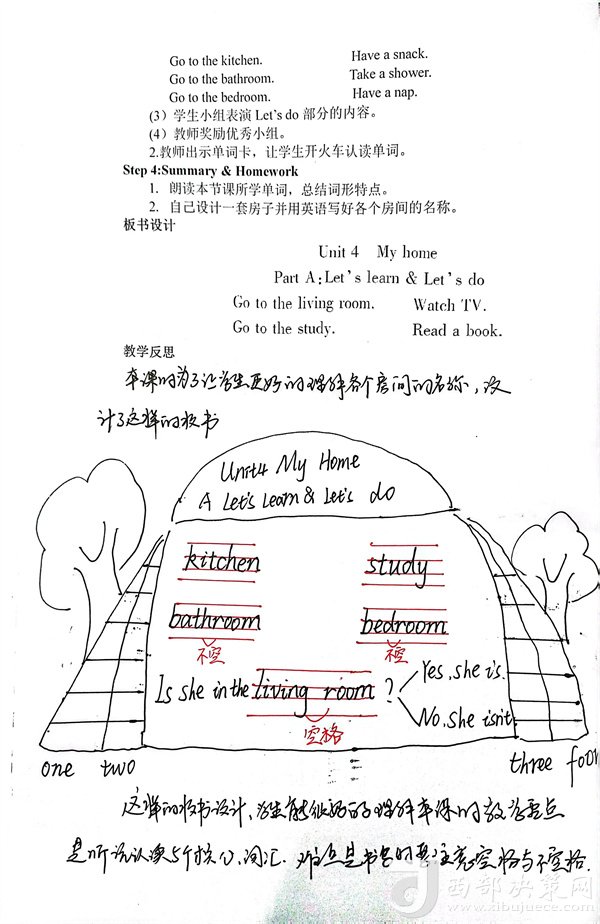 Go to the kitchen. Have a snack.
Go to the bathroom. Take a shower.
Go to the bedroom. Have a nap.
（3）学生小组表演 Let's do 部分的内容。
（4）教师奖励优秀小组。
2.教师出示单词卡，让学生开火车认读单词。
Step 4:Summary & Homework
1. 朗读本节课所学单词，总结词形特点。
2. 自己设计一套房子并用英语写好各个房间的名称。
板书设计
Unit 4 My home
Part A:Let's learn & Let's do
Go to the living room. Watch TV.
Go to the study. Read a book.
教学反思
本课时为了让学生更好的理解各个房间的名称，设
计了这样的板书
Unit4 My Home
A Let's Learn & Let's do
kitchen study
bathroom bedroom
不空 不空
Is she in the living room ? Yes, she is.
No, she isn't
空格
one two three four
这样的板书设计，学生能很好的理解本课的教学重点
是听说认读5个核心词汇。难点是书写时要注意空格与不空格.
西部决策网
www.xibujuece.com